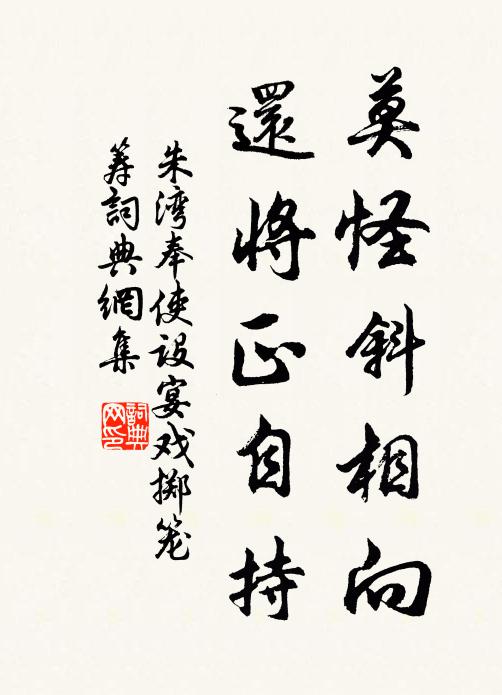 莫怪斜相向
還將正自持
朱湾奉使设宴戏掷笼
筹詞典網集
詞典
网印